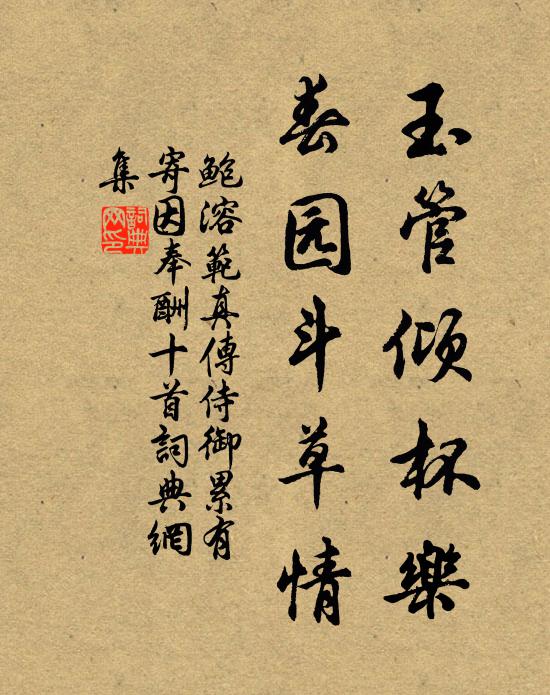 玉管倾杯樂
春园斗草情
鲍溶範真傳侍御累有
寄因奉酬十首詞典網
集
詞典
网印